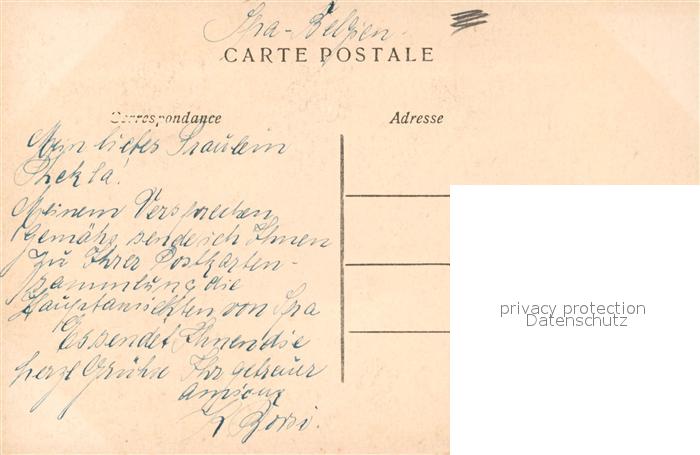 Spa - Belgien.
CARTE POSTALE
Correspondance
Adresse
Mein liebes Fraulein
Thekla!
Meinem Versprechen
gemähs sende ich Ihnen
zu Ihrer Postkarten-
sammlung die
Hauptansichten von Spa
Es sendet Ihnen die
herzl Grühse Ihr getreuer
amicus
privacy protection
Datenschutz